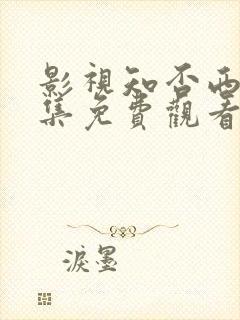 影視知否两
集免費觀看
淚墨